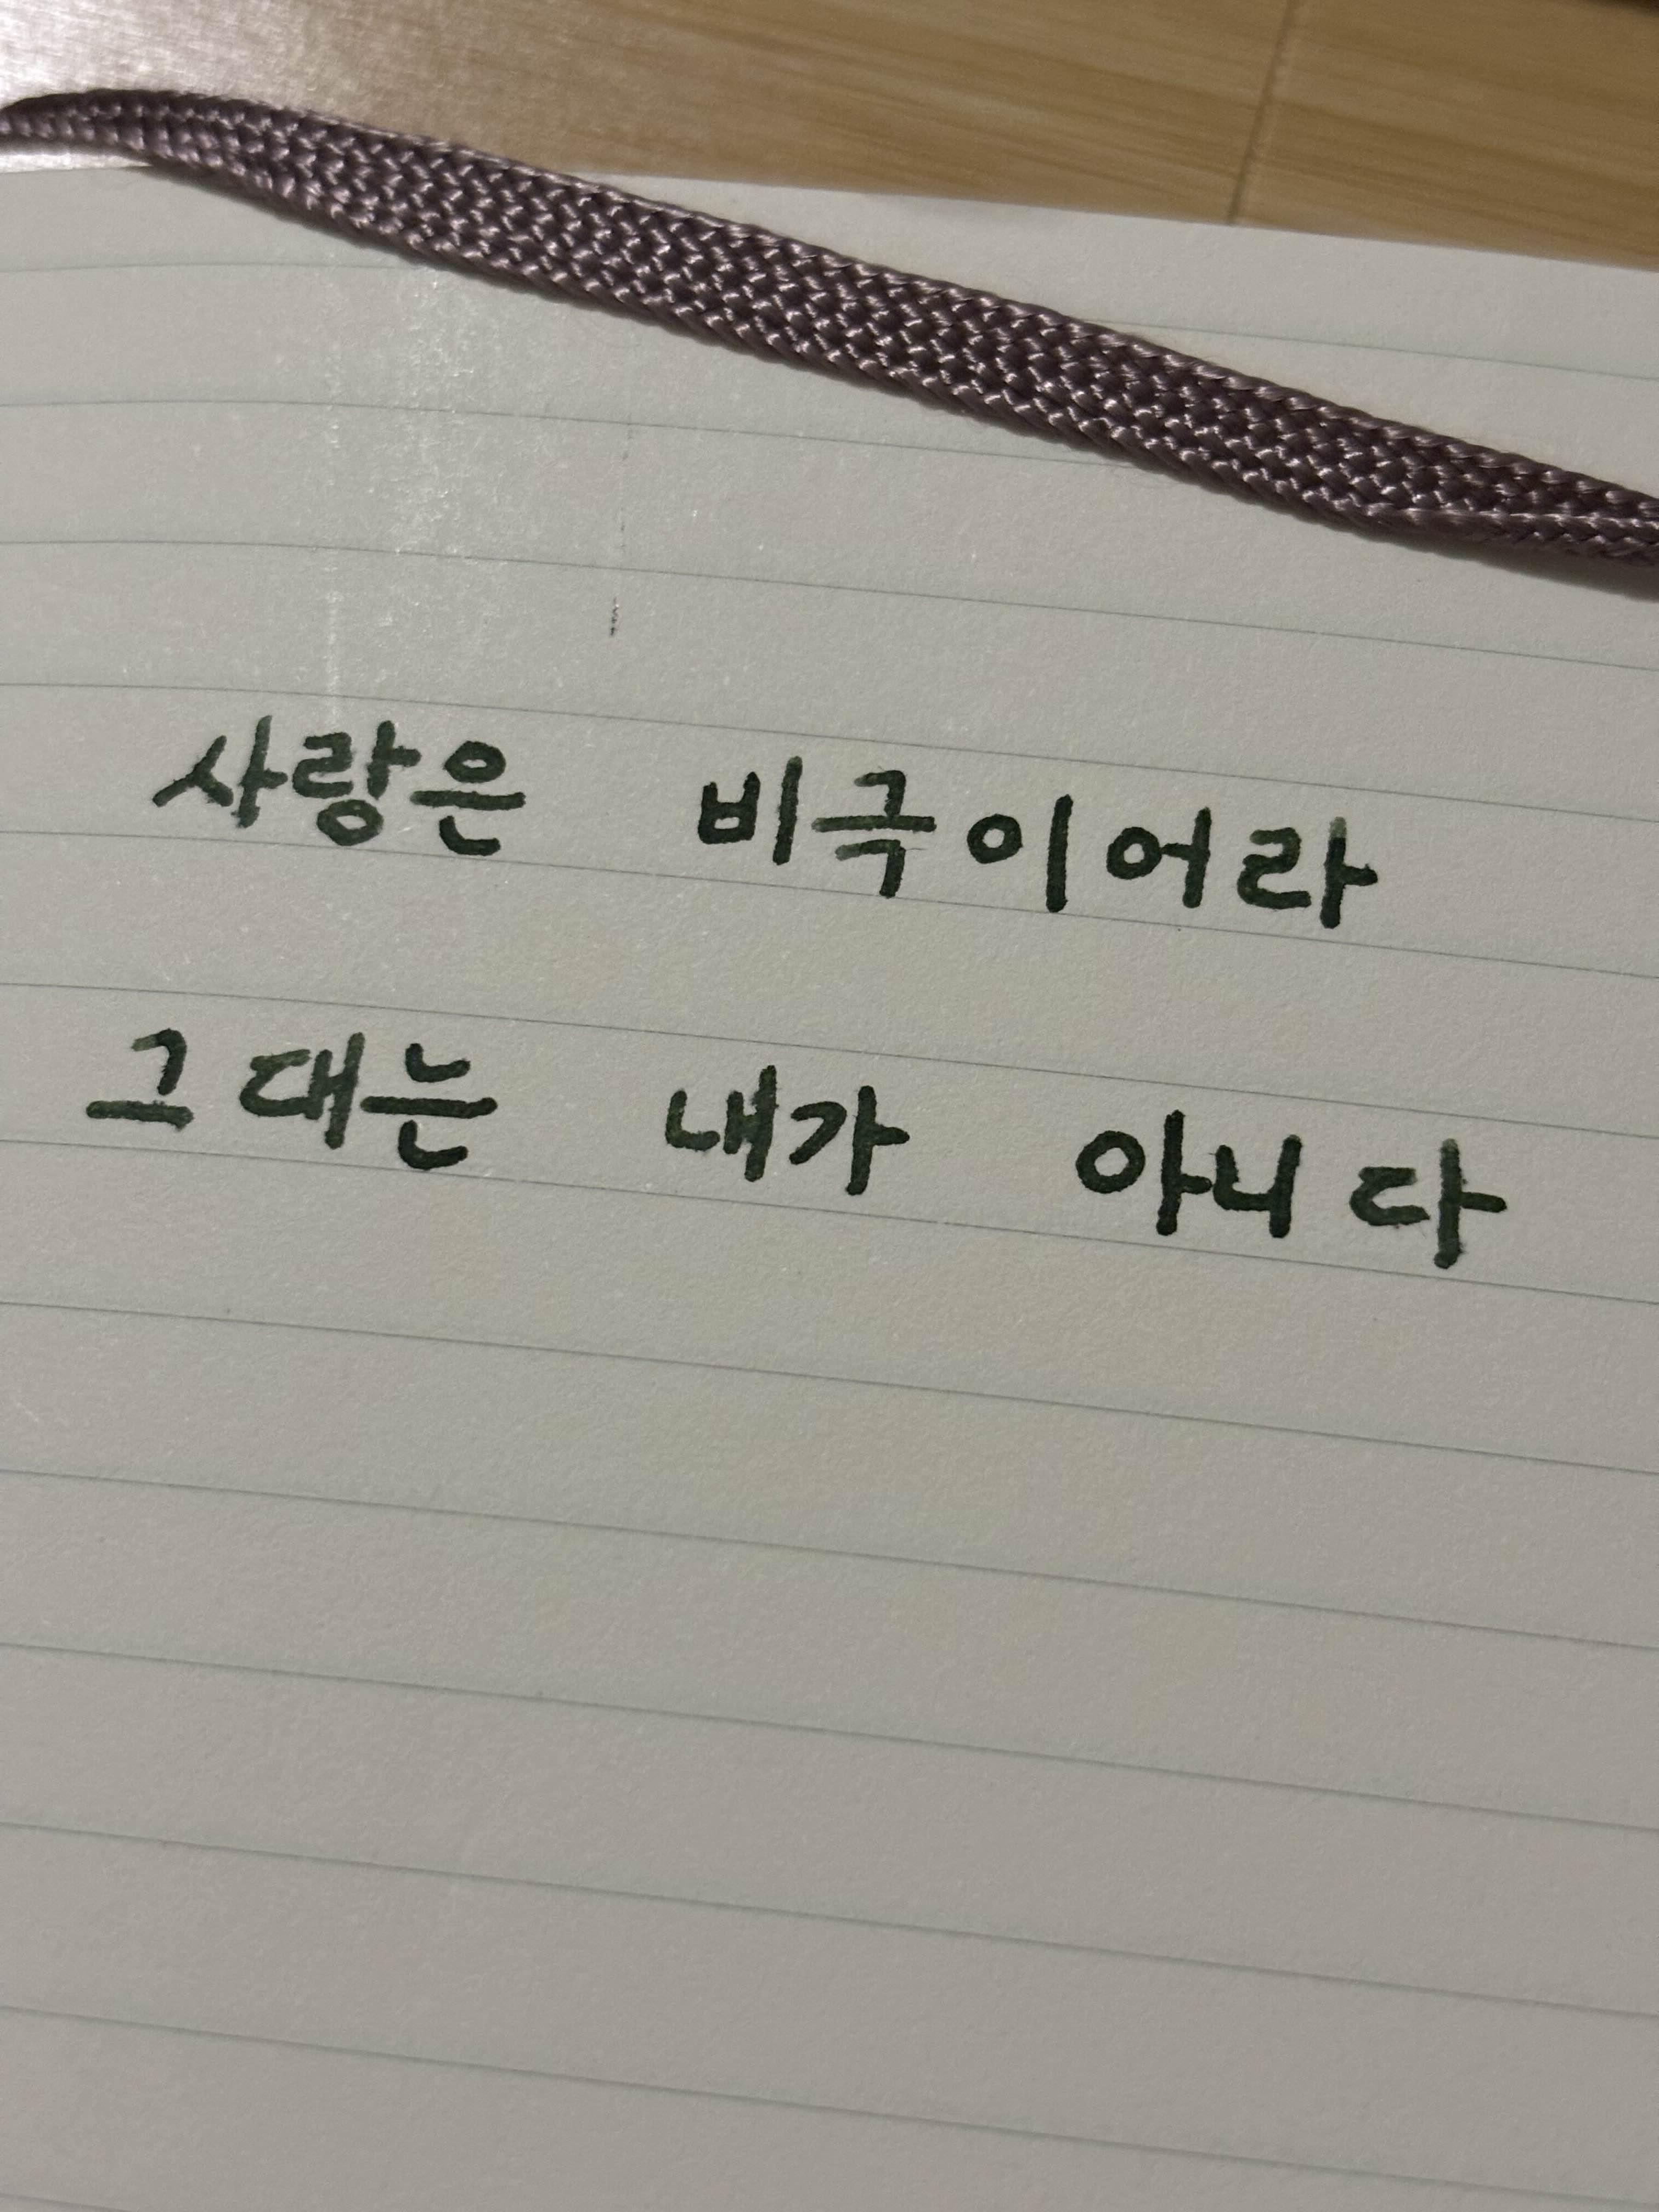 사랑은 비극이어라
그대는 내가 아니다